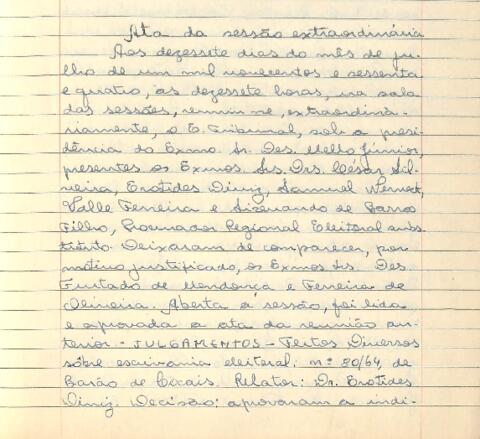 Ata da sessão extraordinária
Aos dezessete dias do mês de ju-
lho de um mil novecentos e sessenta
e quatro, às dezessete horas, na sala
das sessões, reuniu-se, extraordina-
riamente, o E. Tribunal, sob a presi-
dência do Exmo. Sr. Des. Mello Júnior,
presentes os Exmos. Srs. Drs. César Sil-
veira, Erotides Diniz, Samuel Werneck,
Valle Ferreira e Sizenando de Barros
Filho, Procurador Regional Eleitoral subs-
tituto. Deixaram de comparecer, por
motivo justificado, os Exmos Srs. Des.
Furtado de Mendonça e Ferreira de
Oliveira. Aberta a sessão, foi lida
e aprovada a ata da reunião an-
terior - JULGAMENTOS - Feitos Diversos
sôbre escrivania eleitoral: nº 80/64, de
Barão de Cocais. Relator: Dr. Erotides
Diniz. Decisão: aprovaram a indi-